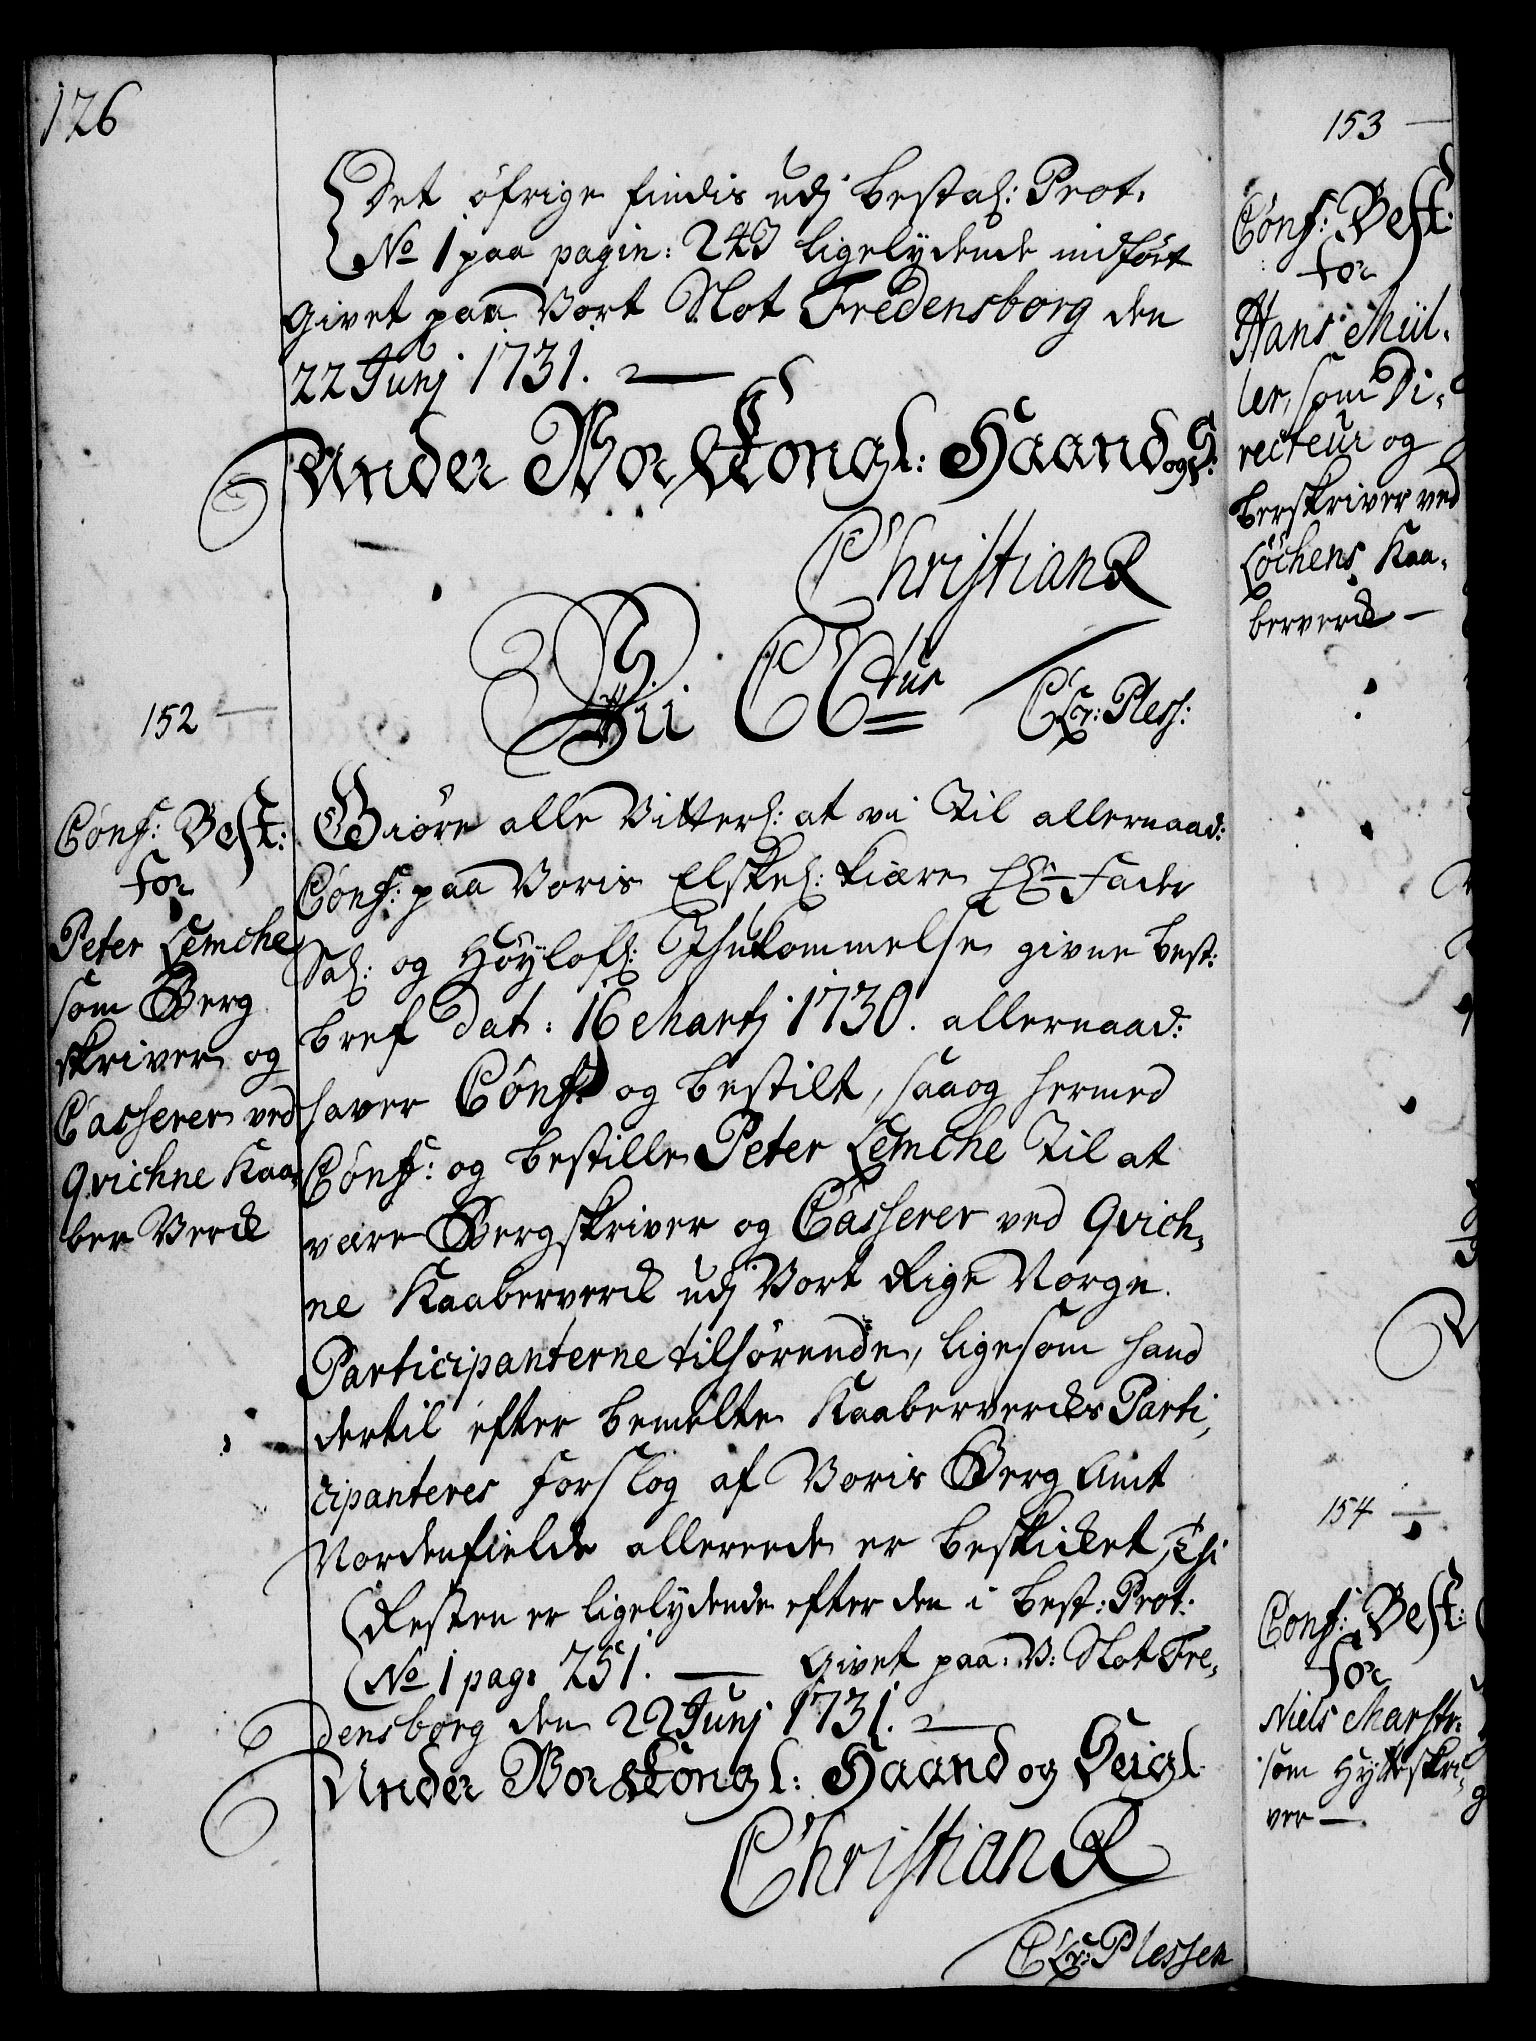 126
Det öfrige findis udj bestal: Prot.
No 1 paa pagin: 243 ligelydende indfört
Givet paa Vort Slot Fredensborg den
22 Junj 1731.
Under Vor Kongl: Haand og S:
Christian R
C Gr: Pless:
152
Conf: Best:
for
Peter Lemche
som Berg
skriver og
Casserer ved
Qvichne Kaa-
ber Verck
Vii CC tus
Giöre alle Vitterl: at vi Til allernaad:
Conf: paa Voris Elskel: kiære Hr Fader
Sal: og Höylofl: Ihukommelse givne best:
bref dat: 16 Martj 1730. allernaad:
haver Conf: og bestilt, saaog hermed
Conf: og bestille Peter Lemche Til at
være Bergskriver og Casserer ved Qvich-
ne Kaaberverck udj Vort Rige Norge
Participanterne tilhörende, ligesom hand
dertil efter bemelte Kaaberverckes Parti-
cipanteres forslog af Voris Berg Amt
Nordenfields allereede er beskicket, Thi
Resten er ligelydende efter den i Best: Prot:
No 1 pag: 251. Givet paa V: Slot Fre-
densborg den 22 Junj 1731.
Under Vor Kongl: Haand og Seigl
Christian R
C Gr: Plessen
153
Conf: Best:
for
Hans Mül-
ler, som Di-
recteur og
berskriver ved
Löchens Kaa-
berverck
154
Conf: Best:
for
Niels Marstr:
som Hytteskri-
ver